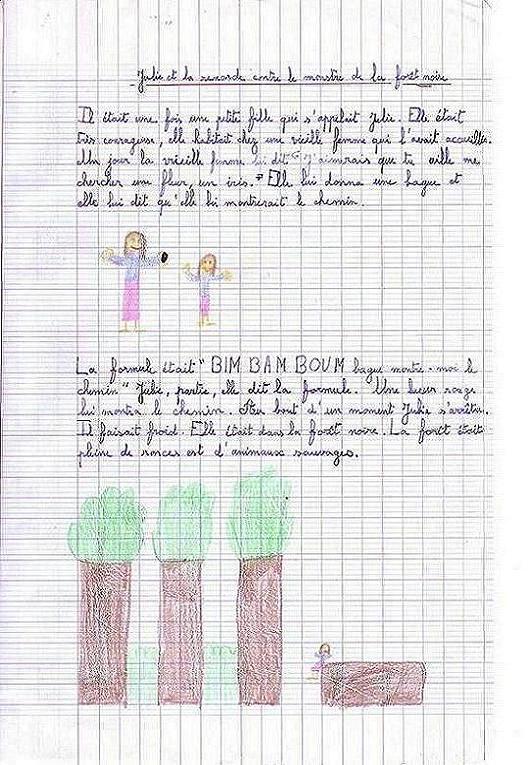 Julie et la renarde contre le monstre de la forêt noire
Il était une fois une petite fille qui s'appelait Julie. Elle était
très courageuse, elle habitait chez une vieille femme qui l'avait accueillie.
Un jour la vieille femme lui dit "J'aimerais que tu aille me
chercher une fleur, un iris." Elle lui donna une bague et
elle lui dit qu'elle lui montrerait le chemin.
La formule était "BIM BAM BOUM bague montre-moi le
chemin" Julie, partie, elle dit la formule. Une lueur rouge
lui montra le chemin. Au bout d'un moment Julie s'arrêta.
Il faisait froid. Elle était dans la forêt noire. La forêt était
pleine de ronces est d'animaux sauvages.